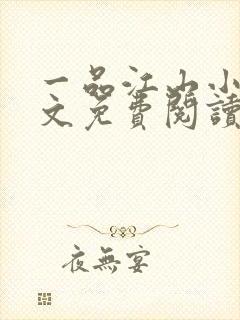 一品江山小
文免費閱讀
夜無宴